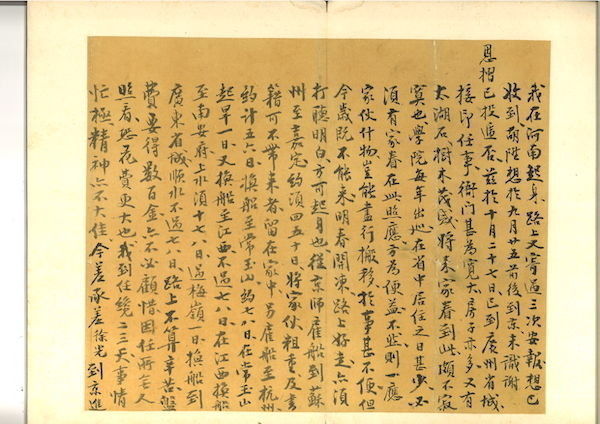 我在河南起身路上又寄過三次安報想已
收到朔陞想於九月廿五前後到京未識謝
恩摺已投進否茲於十月二十七日已到廣州省城
接印任事衙門甚為寬大房子亦多又有
太湖石樹木茂盛將來家眷到此頗不寂
寞也學院每年出地在省中居住之日甚少必
須有家眷在此照應方為便益不然則一應
家伙什物豈能盡行搬移於事甚不便但
今歲既不能來明春開凍路上好走亦須
打聽明白方可起身也從京師雇船到蘇
州至嘉定約須四五十日將家伙粗重及書
籍可不帶來者留在家中另雇船至杭州
約計五六日換船至常玉山約七八日在常玉山
起早一日又換船至江西不過七八日在江西換船
至南安府上水須十七八日過梅嶺一日換船到
廣東省城順水不過七日路上不算辛苦盤
費要得數百金亦不必顧惜因任所無人
照看恐花費更大也我到任纔二三天事情
忙極精神亦不大佳今差承差徐光到京進